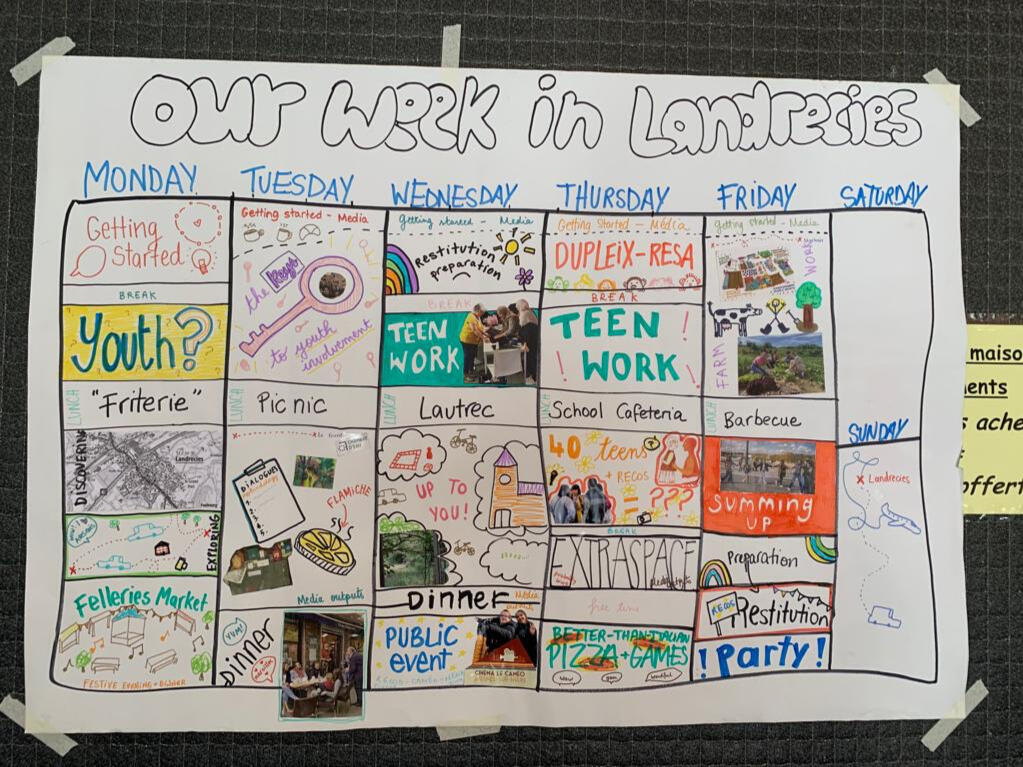 our week in Landrecies
MONDAY
TUESDAY
WEDNESDAY
THURSDAY
FRIDAY
SATURDAY
Getting
Started
BREAK
Youth?
LUNCH
"Friterie"
DISCOVERING
Landrecies
EXPLORING
Felleries Market
FESTIVE EVENING + DINNER
Getting started - Media
the keys
to youth
involvement
LUNCH
Picnic
DIALOGUES
FLAMICHE
Media outputs
YUM!
Dinner
Getting started - Media
Restitution
preparation
BREAK
TEEN
WORK
LUNCH
Lautrec
UP TO
YOU!
DINNER
Media
PUBLIC
event
CINEMA LE CAMEO
Getting Started - Média
DUPLEIX-RESA
BREAK
TEEN !
! WORK !
LUNCH
School Cafeteria
40 teens
+ RECOS
= ???
BREAK
EXTRASPACE
free time
BETTER-THAN-ITALIAN
PIZZA + GAMES
getting started - Media
WORK
FARM
LUNCH
Barbecue
SUMMING
UP
Preparation
RECOS
Restitution
!Party!
SUNDAY
x Landrecies
maiso
ents
s ache
offert